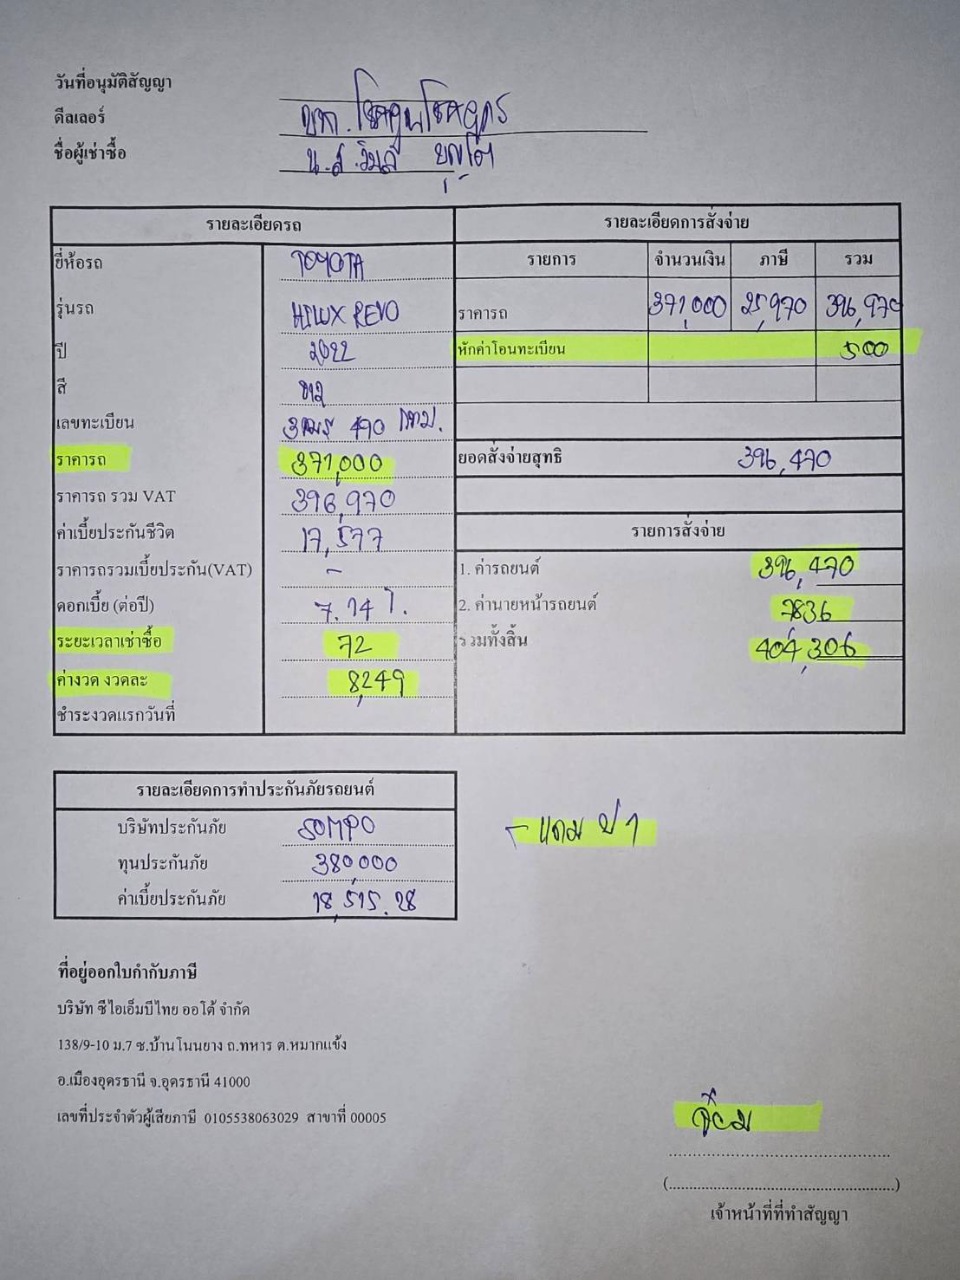 วันที่อนุมัติสัญญา
ดีลเลอร์ หจก. โชคคูณโชค
ชื่อผู้เช่าซื้อ น.ส. วิมล บุญโต
รายละเอียดรถ
ยี่ห้อรถ TOYOTA
รุ่นรถ HILUX REVO
ปี 2022
สี ขาว
เลขทะเบียน 470 กทม.
ราคารถ 371,000
ราคารถ รวม VAT 396,970
ค่าเบี้ยประกันชีวิต 17,577
ราคารถรวมเบี้ยประกัน(VAT) -
ดอกเบี้ย (ต่อปี) 7.74 %
ระยะเวลาเช่าซื้อ 72
ค่างวด งวดละ 8,249
ชำระงวดแรกวันที่
รายละเอียดการสั่งจ่าย
รายการ จำนวนเงิน ภาษี รวม
ราคารถ 371,000 25,970 396,970
หักค่าโอนทะเบียน 500
ยอดสั่งจ่ายสุทธิ 396,470
รายการสั่งจ่าย
1. ค่ารถยนต์ 396,470
2. ค่านายหน้ารถยนต์ 7836
รวมทั้งสิ้น 404,306
รายละเอียดการทำประกันภัยรถยนต์
บริษัทประกันภัย SOMPO
ทุนประกันภัย 380,000
ค่าเบี้ยประกันภัย 18,515.28
- แถม ป 1
ที่อยู่ออกใบกำกับภาษี
บริษัท ซีไอเอ็มบีไทย ออโต้ จำกัด
138/9-10 ม.7 ซ.บ้านโนนยาง ถ.ทหาร ต.หมากแข้ง
อ.เมืองอุดรธานี จ.อุดรธานี 41000
เลขที่ประจำตัวผู้เสียภาษี 0105538063029 สาขาที่ 00005
(..........................................................)
เจ้าหน้าที่ที่ทำสัญญา